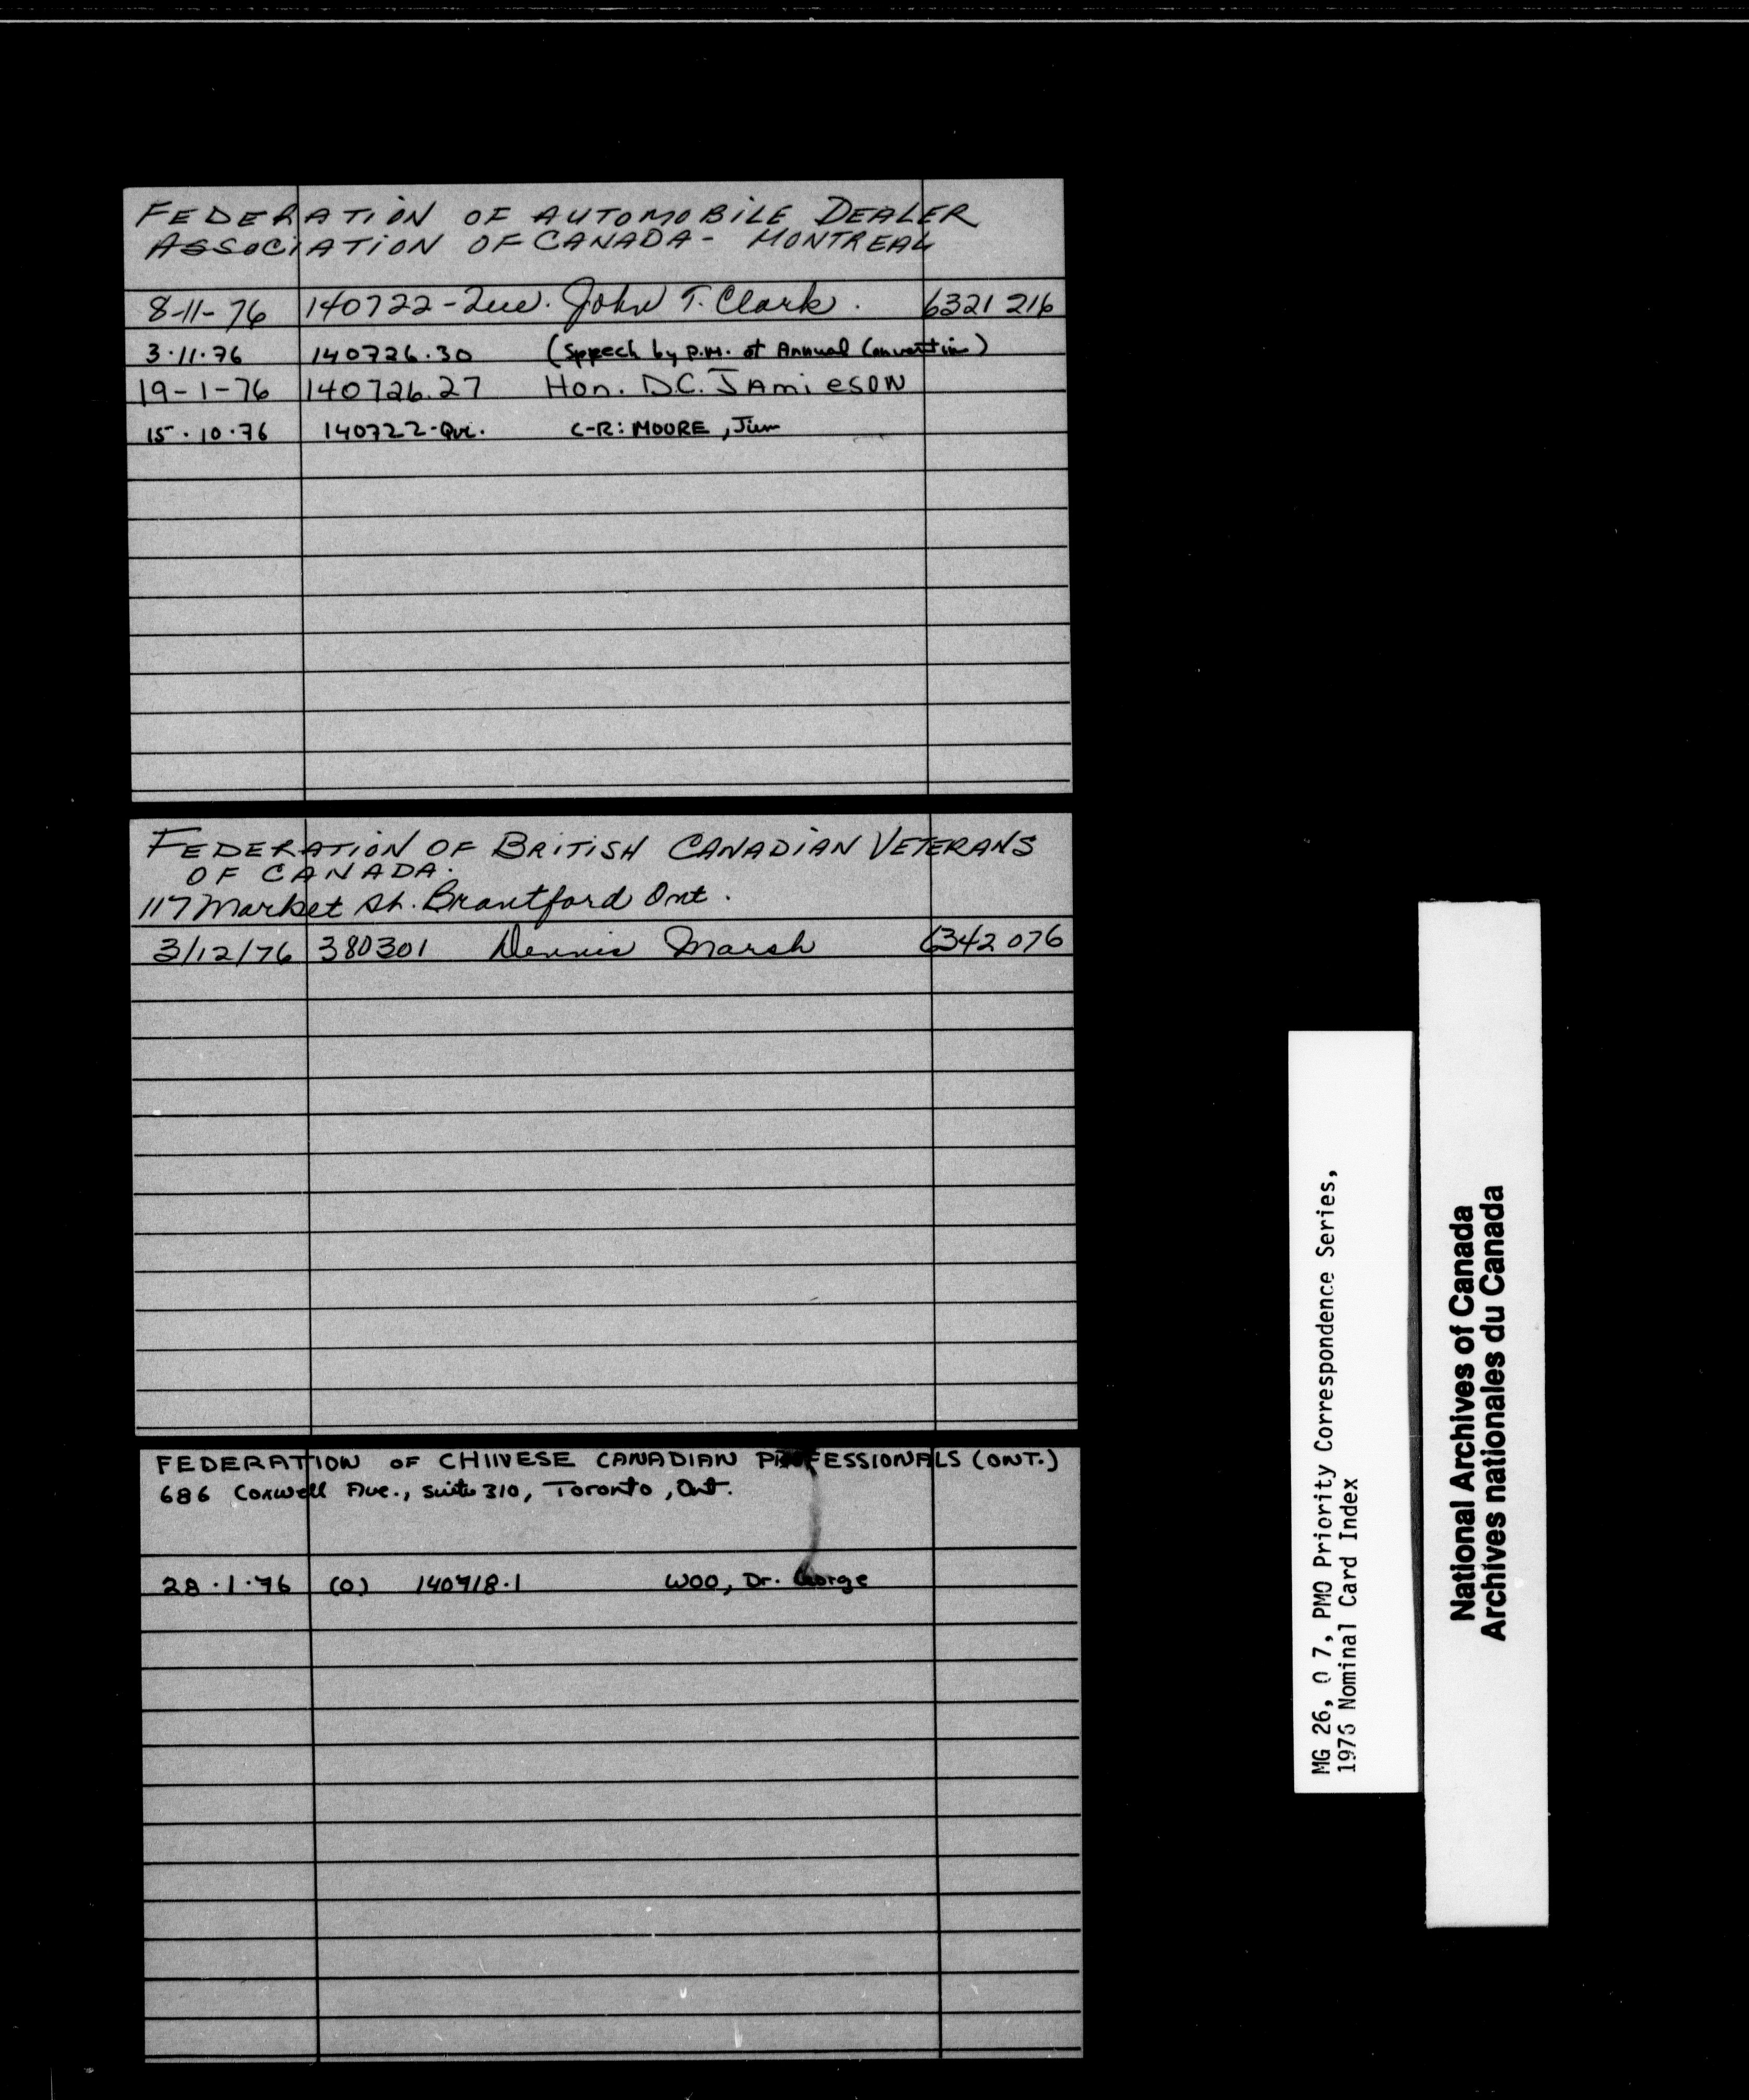 FEDERATION OF AUTOMOBILE DEALER
ASSOCIATION OF CANADA - MONTREAL
8-11-76 140722-Que. John T. Clark. 6321 216
3.11.76 140726.30 (Speech by P.M. at Annual Convention)
19-1-76 140726.27 Hon. D.C. JAMiesON
15.10.76 140722-Que. C-R: MOORE, Jim
FEDERATION OF BRITISH CANADIAN VETERANS
OF CANADA.
117 Market St. Brantford Ont.
3/12/76 380301 Dennis Marsh 6342 076
FEDERATION OF CHINESE CANADIAN PROFESSIONALS (ONT.)
686 Coxwell Ave., Suite 310, Toronto, Ont.
28.1.76 (O) 140718.1 WOO, Dr. George
MG 26, O 7, PMO Priority Correspondence Series,
1976 Nominal Card Index
National Archives of Canada
Archives nationales du Canada